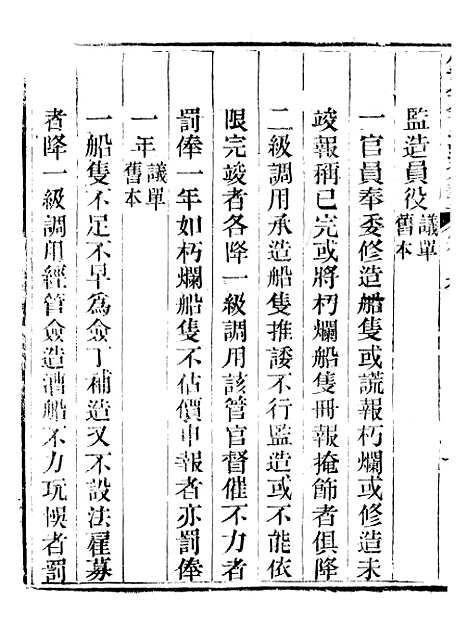 監造員役議單舊本
一官員奉委修造船隻或謊報朽爛或修造未
竣報稱已完或將朽爛船隻冊報掩飾者俱降
二級調用承造船隻推諉不行監造或不能依
限完竣者各降一級調用該管官督催不力者
罰俸一年如朽爛船隻不估價申報者亦罰俸
一年議單舊本
一船隻不足不早為僉丁補造又不設法雇募
者降一級調用經管僉造漕船不力玩悞者罰